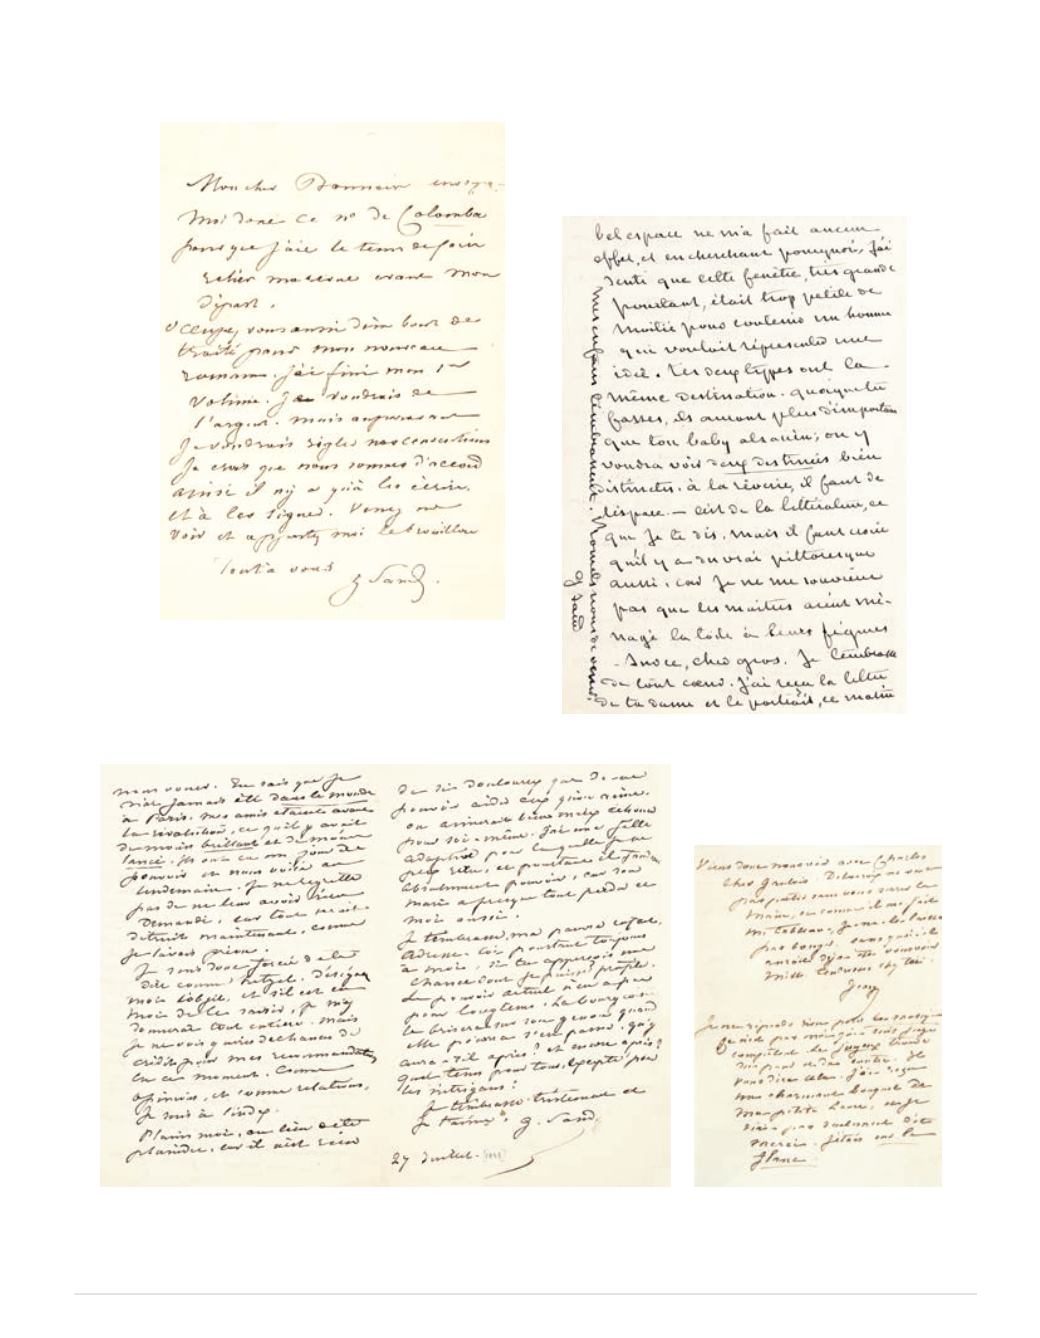 Mon cher Bonnaire envoyez-
moi donc ce no de Colomba
pour que j'aie le tems de faire
relier ma revue avant mon
départ.
occupez vous aussi d'un bout de
traité pour mon nouveau
roman. j'ai fini mon 1er
volume. Je voudrais de
l'argent. mais auparavant
Je voudrais régler nos conventions
Je crois que nous sommes d'accord
ainsi il n'y a qu'à les écrire
et à les signer. Venez me
voir et apportez moi le brouillon
Tout à vous
G Sand.
bel espace ne m'a fait aucun
effet, et en cherchant pourquoi, j'ai
senti que cette fenêtre, très grande
pourtant, était trop petite de
moitié pour contenir un homme
qui voulait représenter une
idée. Tes deux types ont la
même destination. quoique tu
fasses, ils auront plus d'importance
que ton baby alsacien; on y
voudra voir deux destinées bien
distinctes. à la rêverie, il faut de
l'espace. — c'est de la littérature, ce
que je te dis. mais il faut croire
qu'il y a du vrai pittoresque
aussi, car je ne me souviens
pas que les maîtres aient mé-
nagé la toile à leurs figures
- Sur ce, cher gros. Je t'embrasse
de tout cœur. J'ai reçu la lettre
de ta dame et le portrait, ce matin
mes enfans t'embrassent.
G Sand
nous vouer. Tu sais que je
n'ai jamais été dans le monde
à Paris. mes amis étaient avant
la révolution, ce qu'il y avait
de moins brillant et de moins
lancé. ils ont eu un jour de
pouvoir et nous voilà au
lendemain. Je ne regrette
pas de ne leur avoir rien
demandé, car tout serait
détruit maintenant, comme
je l'avais prévu.
Je suis donc forcée de te
dire comme hetzel. Désigne
moi l'objet, et s'il est en
moi de le saisir, je m'y
donnerai tout entière. mais
Je ne vois guères de chances de
crédit pour mes recommandations
en ce moment. Comme
opinions, et comme relations,
Je suis à l'index.
Plains moi, au lieu de te
plaindre, car il n'est rien
de si douloureux que de ne
pouvoir aider ceux qu'on aime.
on aimerait bien mieux échouer
pour soi-même. j'ai une fille
adoptive pour laquelle je ne
peux rien, et pourtant il faudrait
absolument pouvoir, car son
mari a presque tout perdu et
moi aussi.
Je t'embrasse, ma pauvre
adresse-toi pourtant toujours
à moi, si tu apperçois une
chance dont je puisse profiter.
Le pouvoir actuel n'en a pas
pour longtems. La bourgeoisie
le brisera sur son genou quand
elle pourra s'en passer. qu'y
aura-t-il après? et encore après?
quel tems pour tous, excepté pour
les intrigans!
Je t'embrasse tristement et
Je t'aime. G. Sand
27 Juillet.
Viens donc nous voir avec Charles
cher Gaulois. Delacroix ne veut
pas partir sans vous serrer la
main, et comme il me fait
un tableau, je ne le laisse
pas bouger. sans quoi, il
aurait déja été vous voir
mille tendresses chez toi.
George
compétent. le joyeux
vous dira cela. j'ai reçu
un charmant bouquet de
ma petite
merci. j'étais sur le
flanc